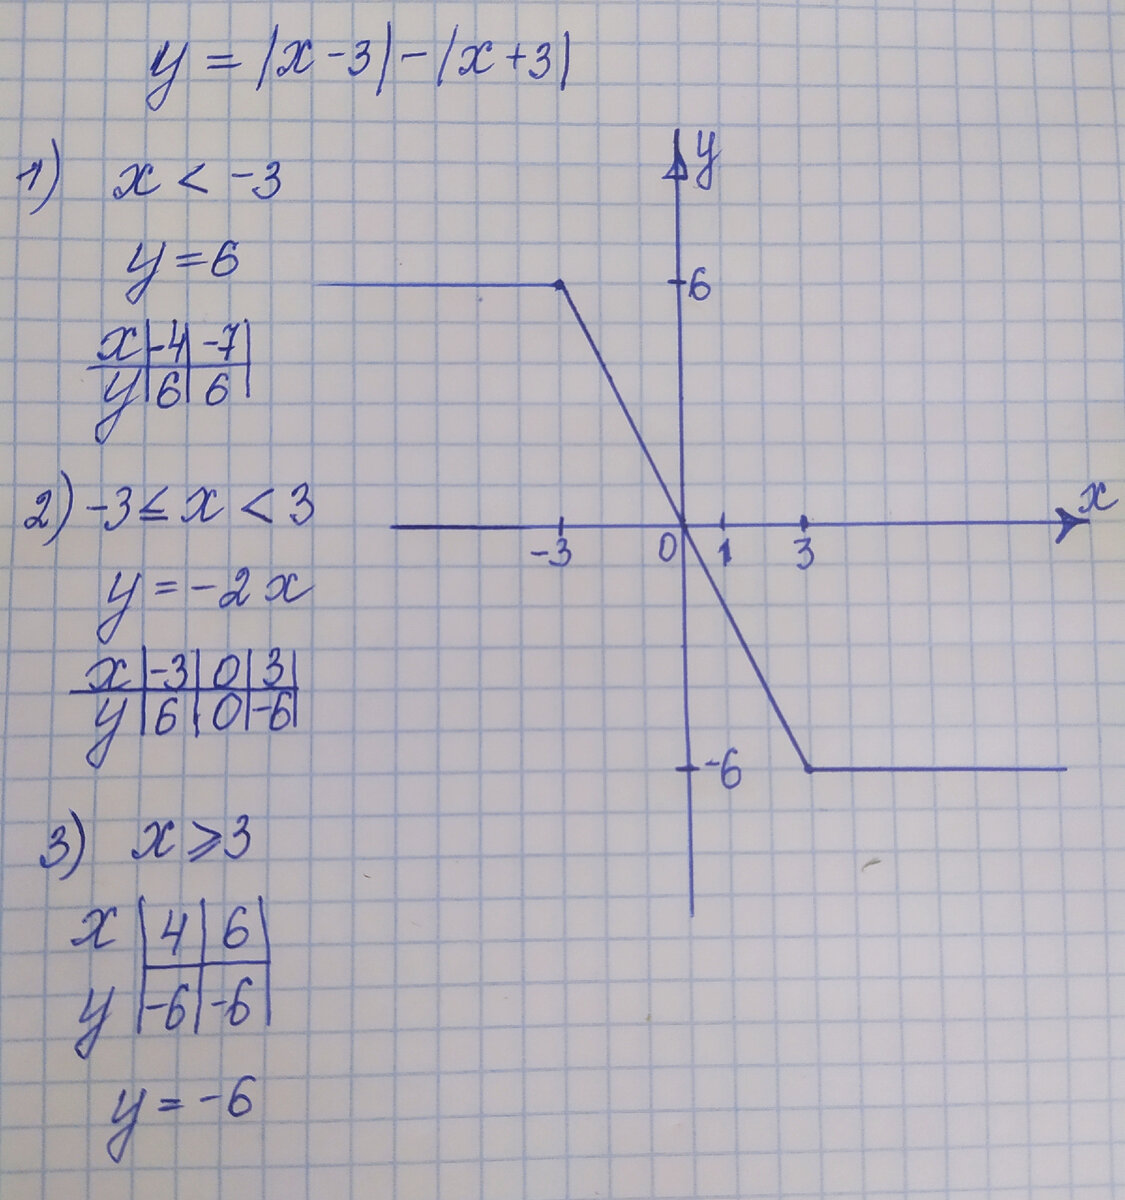 y = |x-3|-|x+3|
1) x < -3
y = 6
x | -4 | -7 |
y | 6 | 6 |
2) -3 ≤ x < 3
y = -2x
x | -3 | 0 | 3 |
y | 6 | 0 | -6 |
3) x ⩾ 3
x | 4 | 6 |
y | -6 | -6 |
y = -6
y
6
x
-3 0 1 3
-6